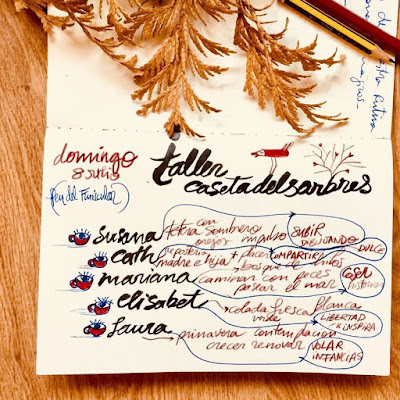 domingo
8 julio
(Peu del Funicular)
taller
casetadelsarbres
susana
con
tetera sombrero
impulso
SUBIR
DIBUJANDO
DULCE
cath
repostería + placer COMPARTIR
madre e hija
bosque de
mariana
caminar con peces
pasear el mar
COSER
historias
elisabet
celada fresca blanca
verde
LIBERTAD
INSPIRA
laura
primavera contemplación
crecer renovar
VOLAR
INFANCIAS